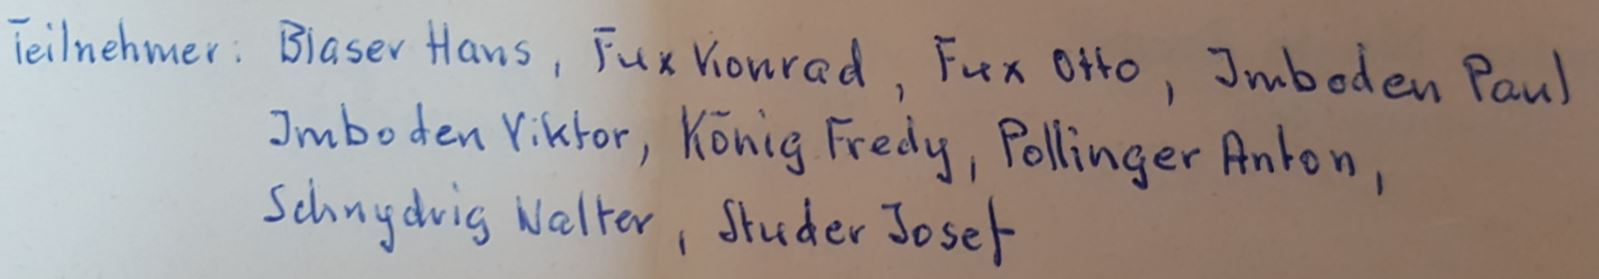 Teilnehmer: Blaser Hans, Fux Konrad, Fux Otto, Imboden Paul
Imboden Viktor, König Fredy, Pollinger Anton,
Schnydrig Walter, Studer Josef